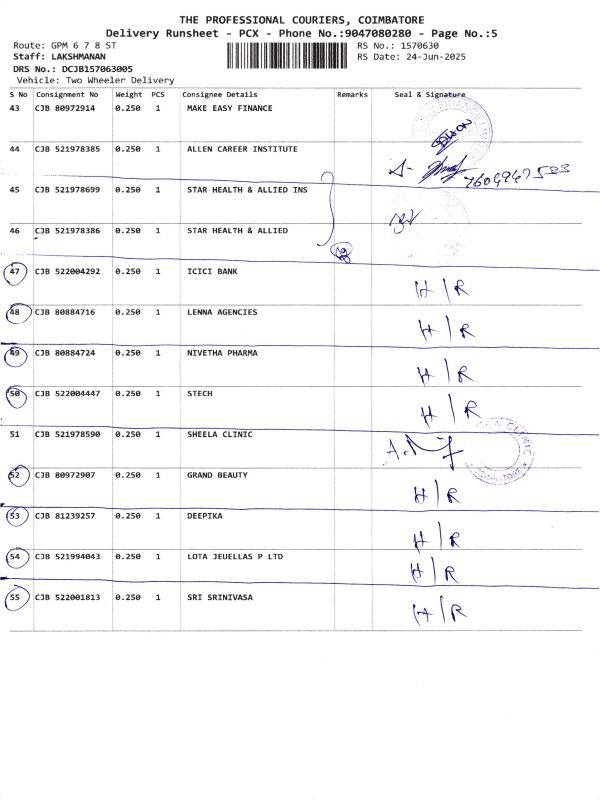 THE PROFESSIONAL COURIERS, COIMBATORE
Delivery Runsheet - PCX - Phone No.:9047080280 - Page No.:5
Route: GPM 6 7 8 ST RS No.: 1570630
Staff: LAKSHMANAN RS Date: 24-Jun-2025
DRS No.: DCJB157063005
Vehicle: Two Wheeler Delivery
S No Consignment No Weight PCS Consignee Details Remarks Seal & Signature
43 CJB 80972914 0.250 1 MAKE EASY FINANCE
44 CJB 521978385 0.250 1 ALLEN CAREER INSTITUTE
7604967583
45 CJB 521978699 0.250 1 STAR HEALTH & ALLIED INS
46 CJB 521978386 0.250 1 STAR HEALTH & ALLIED
47 CJB 522004292 0.250 1 ICICI BANK
H/R
48 CJB 80884716 0.250 1 LENNA AGENCIES
H/R
49 CJB 80884724 0.250 1 NIVETHA PHARMA
H/R
50 CJB 522004447 0.250 1 STECH
H/R
51 CJB 521978590 0.250 1 SHEELA CLINIC
52 CJB 80972907 0.250 1 GRAND BEAUTY
H/R
53 CJB 81239257 0.250 1 DEEPIKA
H/R
54 CJB 521994043 0.250 1 LOTA JEUELLAS P LTD
H/R
55 CJB 522001813 0.250 1 SRI SRINIVASA
H/R